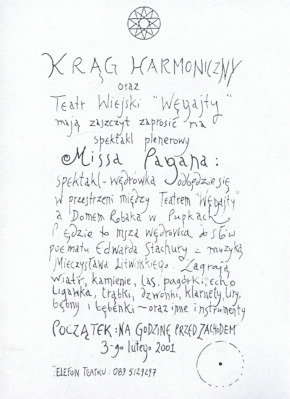 KRĄG HARMONICZNY
oraz
Teatr Wiejski "Węgajty"
mają zaszczyt zaprosić na
spektakl plenerowy
Missa Pagana:
spektakl-wędrówka odbędzie się
w przestrzeni między Teatrem "Węgajty"
a Domem Robaka w Pupkach
Będzie to msza wędrowca do słów
poematu Edwarda Stachury z muzyką
Mieczysława Litwińskiego. Zagrają
wiatr, kamienie, las, pagórki, echo
ligawka, trąbki, dzwonki, klarnety, liry,
bębny i bębenki - oraz inne instrumenty
POCZĄTEK: NA GODZINĘ PRZED ZACHODEM
3-go lutego 2001
TELEFON TEATRU: 089 5129297